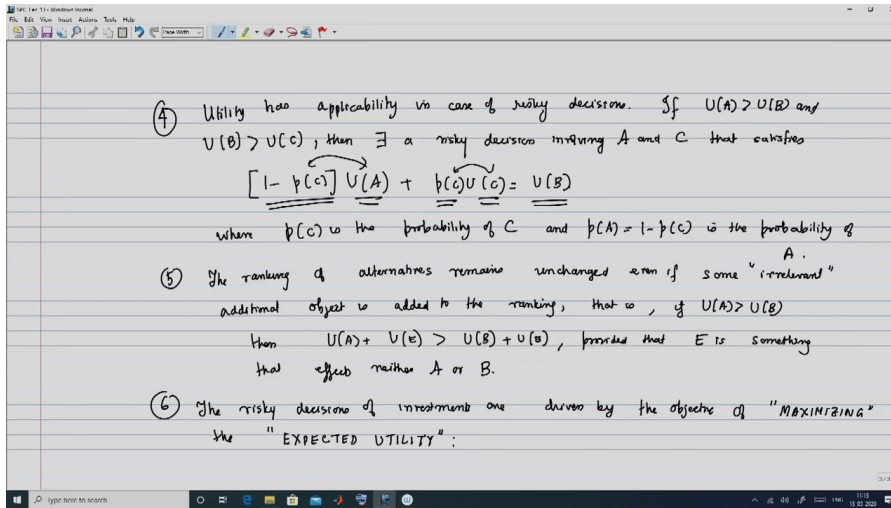 SPC Lec 13 - Windows Journal
File Edit View Insert Actions Tools Help
Page Width
④ Utility has applicability in case of risky decisions. If U(A) > U(B) and
U(B) > U(C), then ∃ a risky decision involving A and C that satisfies
[1 - p(c)] U(A) + p(c) U(C) = U(B)
where p(c) is the probability of C and p(A) = 1 - p(c) is the probability of
A.
⑤ The ranking of alternatives remains unchanged even if some "irrelevant"
additional object is added to the ranking, that is, if U(A) > U(B)
then U(A) + U(E) > U(B) + U(E), provided that E is something
that effects neither A or B.
⑥ The risky decisions of investment are driven by the objective of "MAXIMIZING"
the "EXPECTED UTILITY":
3/3
Type here to search
ENG
11:13
15 05 2020